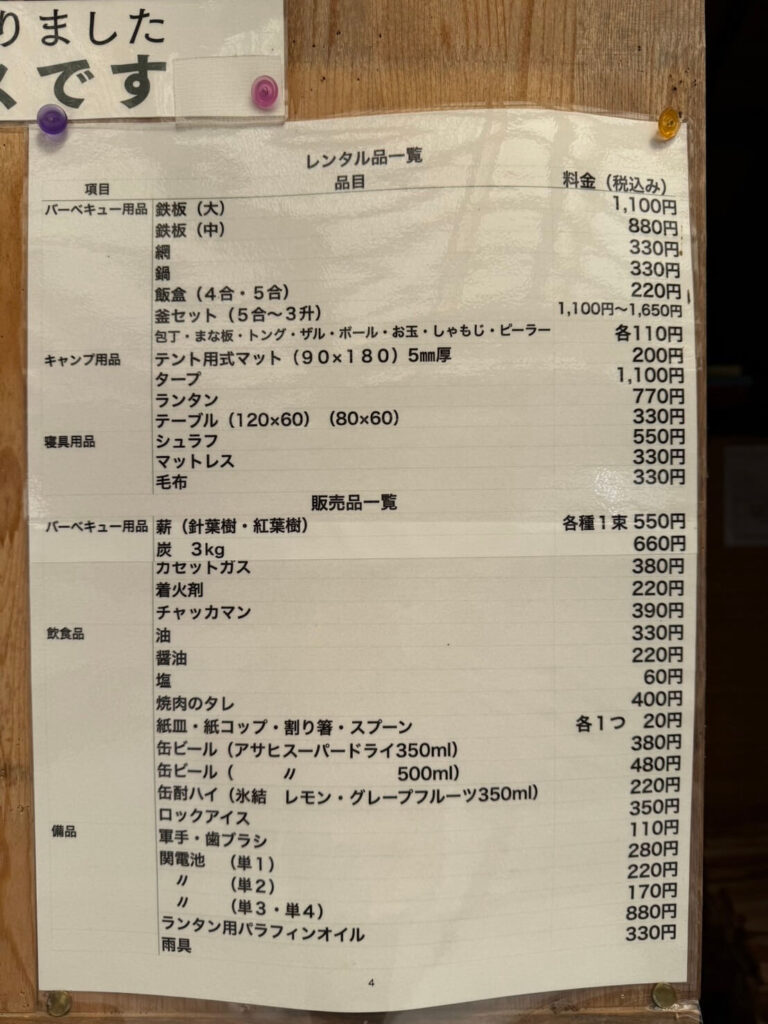 りました
スです
レンタル品一覧
項目 品目 料金（税込み）
バーベキュー用品 鉄板（大） 1,100円
鉄板（中） 880円
網 330円
鍋 330円
飯盒（４合・５合） 220円
釜セット（５合〜３升） 1,100円〜1,650円
包丁・まな板・トング・ザル・ボール・お玉・しゃもじ・ピーラー 各110円
キャンプ用品 テント用式マット（９０×１８０）5㎜厚 200円
タープ 1,100円
ランタン 770円
テーブル（120×60）（80×60） 330円
寝具用品 シュラフ 550円
マットレス 330円
毛布 330円
販売品一覧
バーベキュー用品 薪（針葉樹・紅葉樹） 各種１束 550円
炭　３kg 660円
カセットガス 380円
着火剤 220円
チャッカマン 390円
飲食品 油 330円
醤油 220円
塩 60円
焼肉のタレ 400円
紙皿・紙コップ・割り箸・スプーン 各１つ　20円
缶ビール（アサヒスーパードライ350ml） 380円
缶ビール（　〃　500ml） 480円
缶酎ハイ（氷結　レモン・グレープフルーツ350ml） 220円
ロックアイス 350円
備品 軍手・歯ブラシ 110円
関電池　（単１） 280円
〃　（単２） 220円
〃　（単３・単４） 170円
ランタン用パラフィンオイル 880円
雨具 330円
4